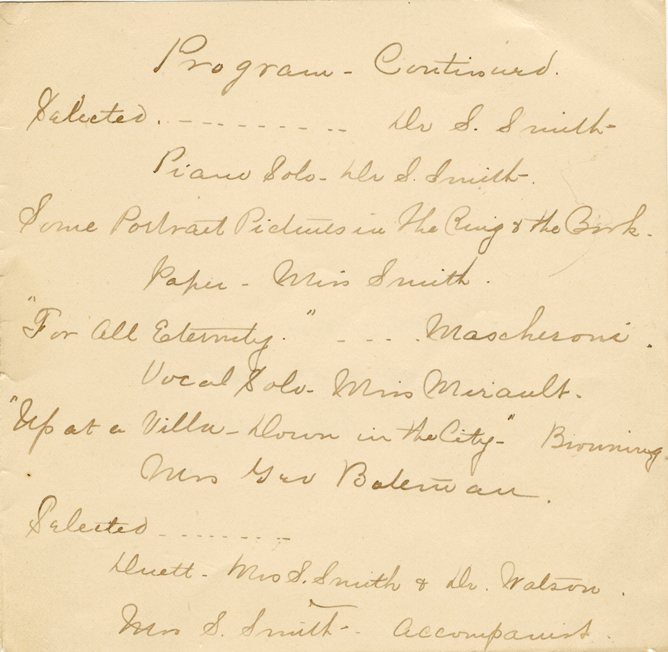 Program - Continued.
Selected. - - - - - - - - - Dr S. Smith-
Piano Solo - Dr S. Smith-.
Some Portrait Pictures in The Ring & the Book.
Paper - Miss Smith.
"For All Eternity." - - - . Mascheroni.
Vocal Solo - Miss Mirault.
"Up at a Villa - Down in the City-" Browning.
Mrs Geo Bateman.
Selected - - - - - - - -
Duett - Mrs S. Smith & Dr. Watson.
Mrs S. Smith - Accompanist.